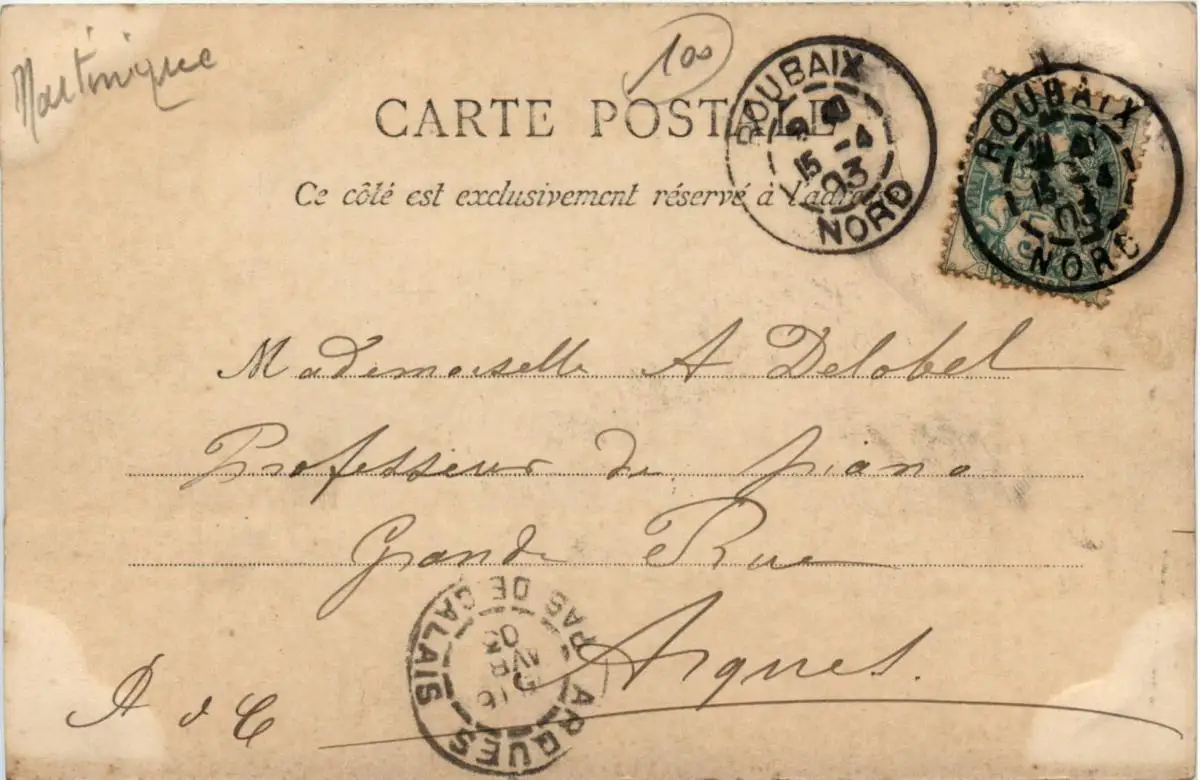 Martinique
100
CARTE POSTALE
Ce côté est exclusivement réservé à l'adresse
ROUBAIX
15 -4
03
NORD
ROUBAIX
15 -4
03
NORD
Mademoiselle A Delobel
Professeur de piano
Grande Rue
Arques.
A d C
ARQUES
PAS DE CALAIS
16
AVR
03